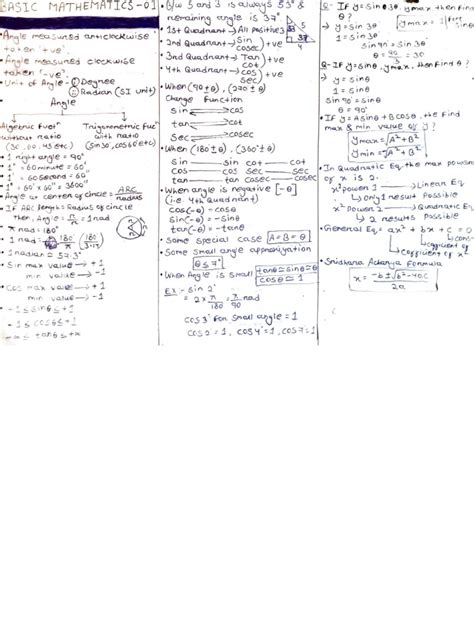 BASIC MATHEMATICS-01
• Angle measured anticlockwise
taken '+ve'.
• Angle measured clockwise
taken '-ve'.
• Unit of Angle - ① Degree
② Radian (SI unit)
Angle
Algebric Funⁿ Trigonometric Funⁿ
without ratio with ratio
(30, 00, 45 etc) (Sin30, cos60 etc)
• 1 right angle = 90°
• 1° = 60 minute = 60'
• 1' = 60 second = 60"
• 1° = 60' × 60" = 3600"
• Angle at center of circle = ARC/radius
• If ARC length = Radius of circle
then, Angle = r/r = 1 rad
• π rad = 180°
• 1 rad = 180/π (180/3.14)
• 1 radian ≅ 57.3°
• Sin max value → +1
min value → -1
• Cos max value → +1
min value → -1
• -1 ≤ sinθ ≤ +1
• -1 ≤ cosθ ≤ +1
• -∞ ≤ tanθ ≤ +∞
• b/w 5 and 3 is always 53° &
remaining angle is 37°
• 1st Quadrant - All positive
• 2nd Quadrant - Sin, cosec } +ve
• 3rd Quadrant - Tan, cot } +ve
• 4th Quadrant - cos, sec } +ve
• When (90±θ), (270±θ)
Change Function
Sin cos
tan cot
Sec cosec
• When (180±θ), (360±θ)
Sin — sin cot — cot
cos — cos sec — sec
tan — tan cosec — cosec
• When angle is negative [-θ]
(i.e. 4th quadrant)
cos(-θ) = cosθ
Sin(-θ) = -Sinθ
tan(-θ) = -tanθ
• Some special case A = B = θ
• Some small angle approxiyation
θ ≤ 7°
• When Angle is small tanθ ≅ sinθ ≅ θ
cosθ ≅ 1
EX:- sin 2°
= 2 × π/180 = π/90 rad
cos 3° For small angle = 1
cos 2 = 1, cos 4° = 1, cos 7 = 1
Q- If y = sin3θ, ymax then find
θ?
→ y = sin3θ ymax = 1
1 = sin3θ
sin90 = sin3θ
θ = 90/3 = 30
Q- If y = sinθ, ymax, then find θ?
→ y = sinθ
1 = sinθ
sin90 = sinθ
θ = 90°
• If y = Asinθ + Bcosθ, the Find
max & min value of y?
ymax = √A²+B²
ymin = -√A²+B²
• In Quadratic Eq. the max power
of x is 2.
x' power 1 → Linear Eq
↳ only 1 result Possible
x² power 2 → Quadratic Eq
↳ 2 results Possible
• General Eq = ax² + bx + c = 0
cofficient of x²
cofficient of x
• Sridhara Acharya Formula
x = -b ± √b²-4ac / 2a